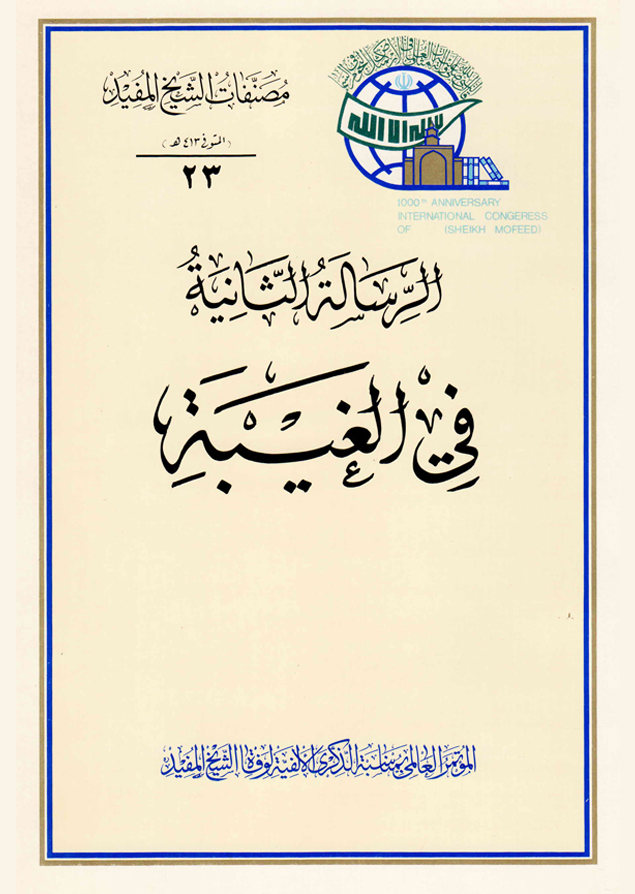 مُصَنَّفَاتُ الشَّيْخِ المُفِيْدِ
(المتوفى ٤١٣ هـ)
٢٣
لا إله إلا الله
1000th ANNIVERSARY
INTERNATIONAL CONGERESS
OF (SHEIKH MOFEED)
الرِّسَالَةُ الثَّانِيَةُ
فِي الْغَيْبَةِ
المؤتمر العالمي بمناسبة الذكرى الألفية لوفاة الشيخ المفيد